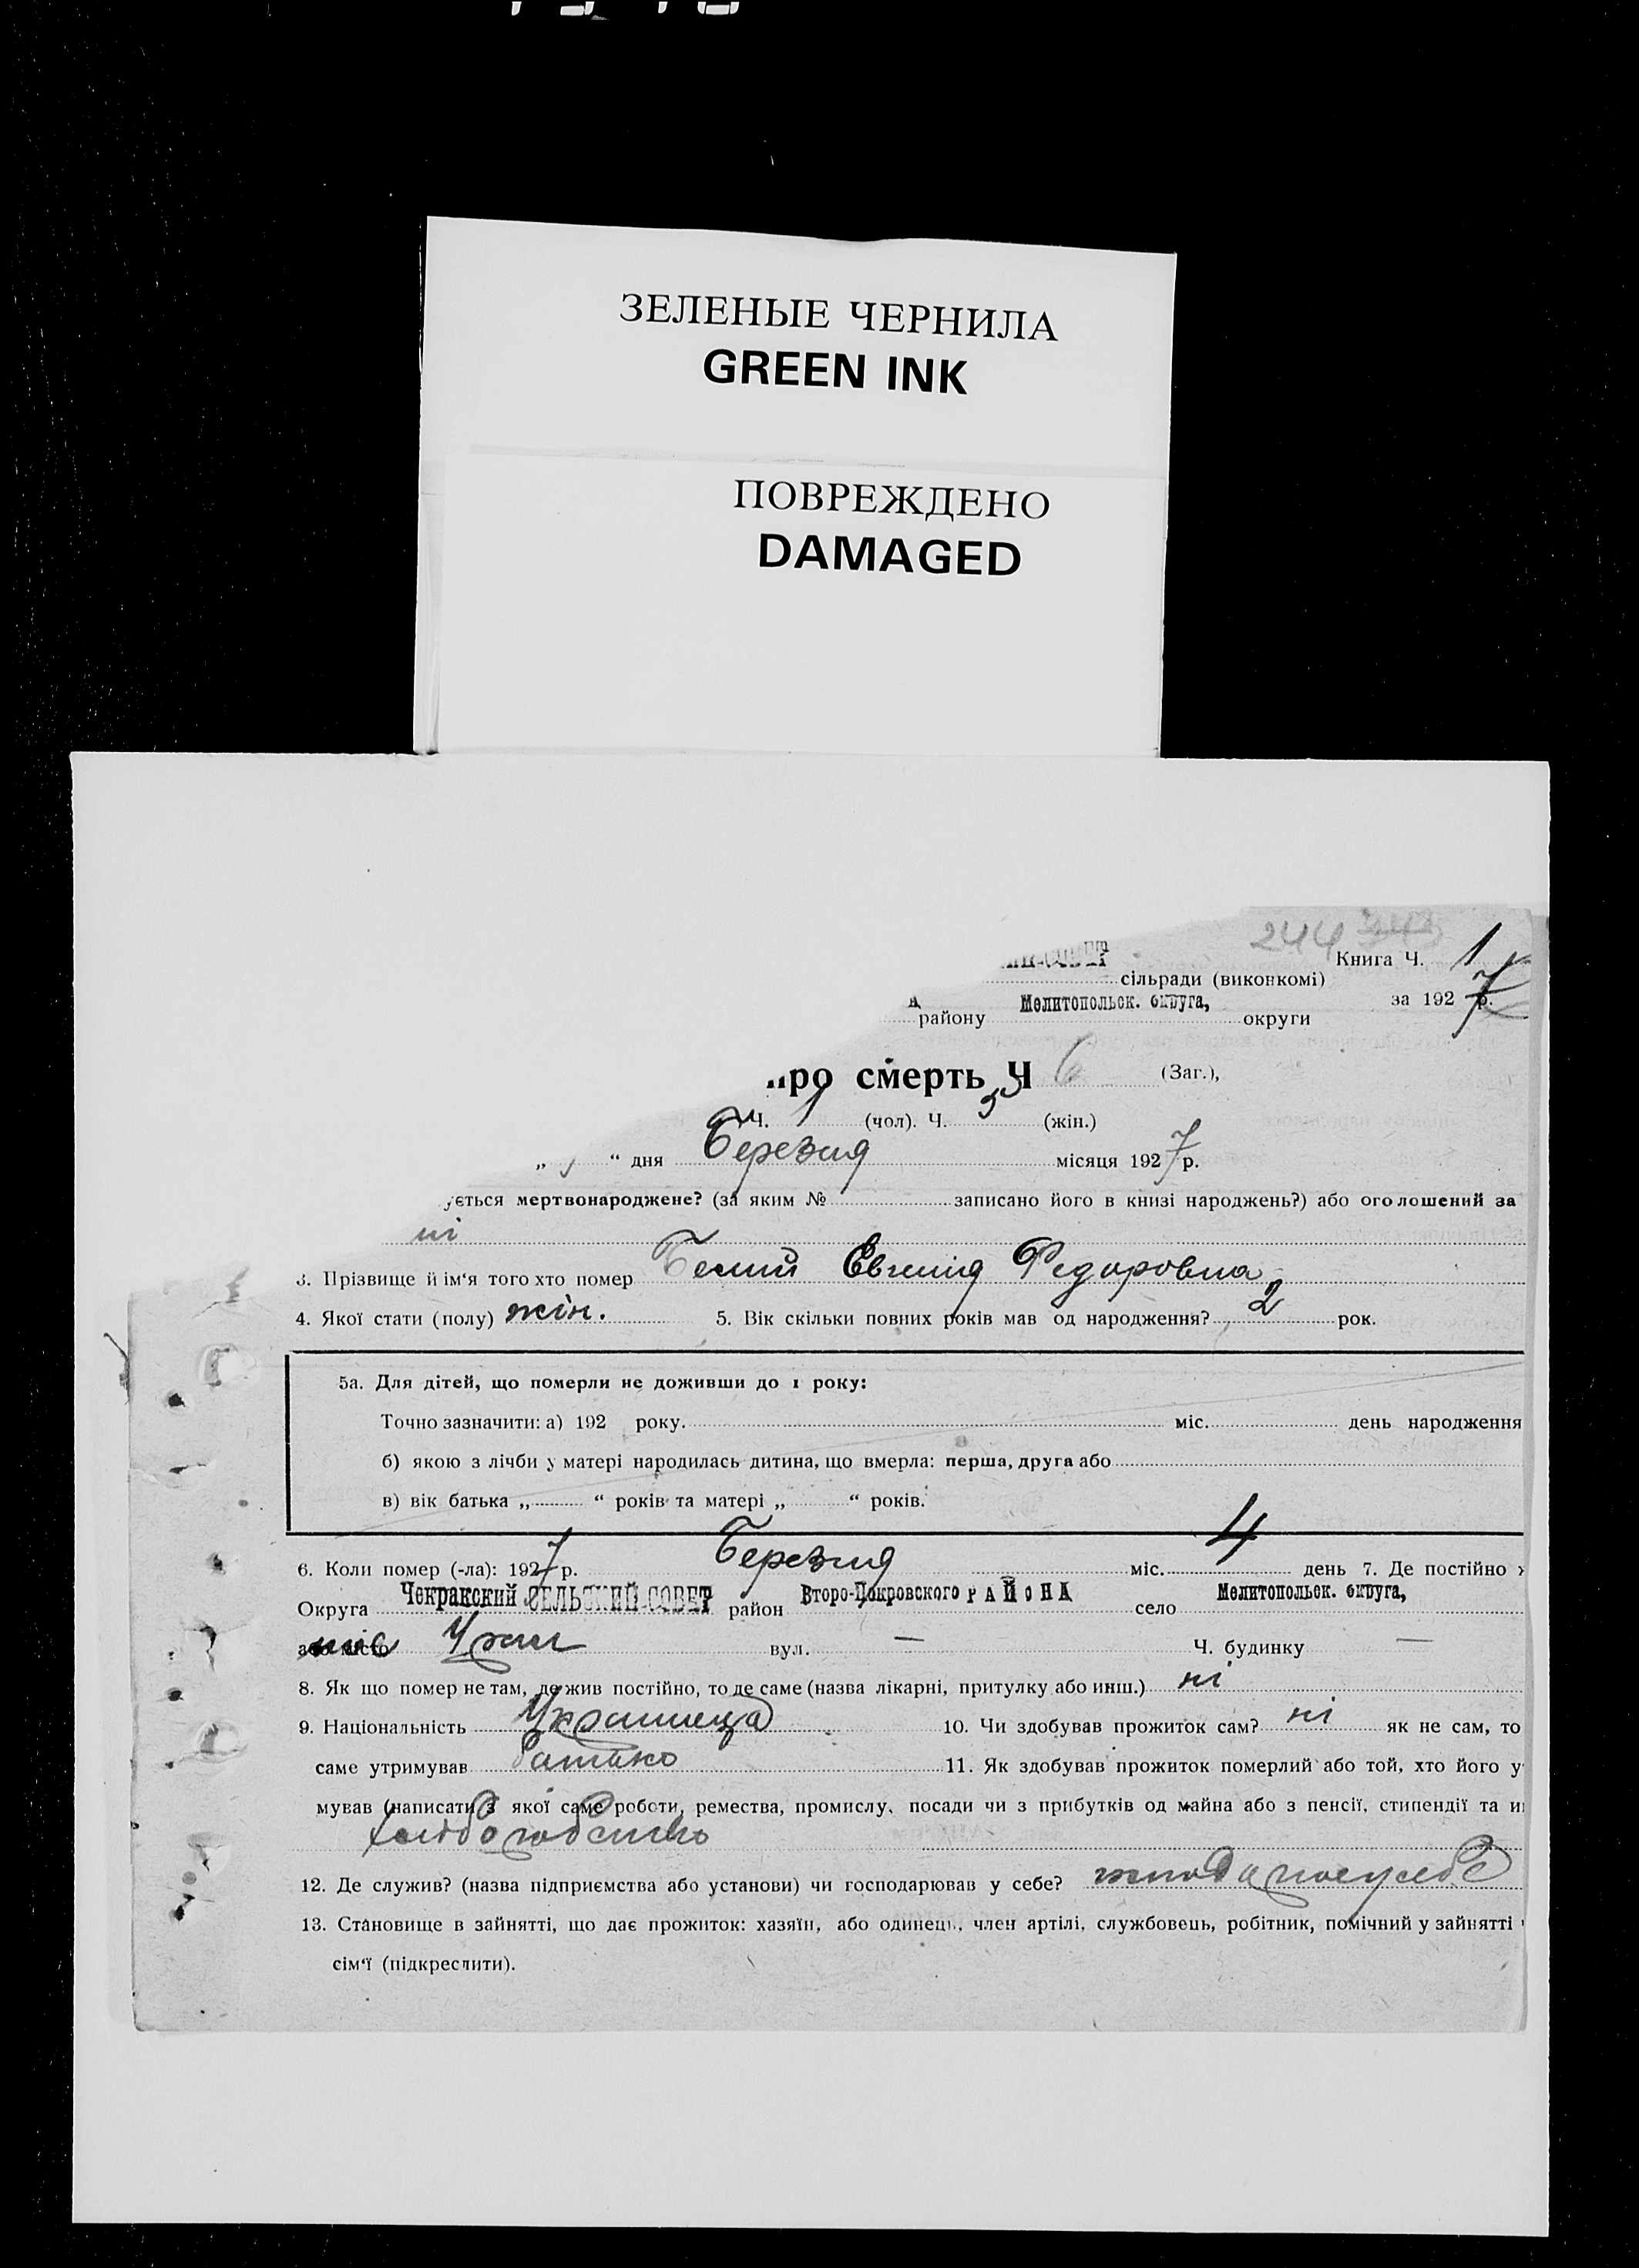 ЗЕЛЕНЫЕ ЧЕРНИЛА
GREEN INK
ПОВРЕЖДЕНО
DAMAGED
244
Книга Ч. 1
сільради (виконкомі)
за 1927 р.
району Мелитопольск. округа, округи
про смерть Ч 6 (Заг.),
Ч. 1 (чол). Ч. 5 (жін.)
„ “ дня Березня місяця 1927 р.
ується мертвонароджене? (за яким № записано його в книзі народжень?) або оголошений за
ні
3. Прізвище й ім‘я того хто помер Евгенія Федоровна
4. Якої стати (полу) жін. 5. Вік скільки повних років мав од народження? 2 рок.
5а. Для дітей, що померли не доживши до 1 року:
Точно зазначити: а) 192 року. міс. день народження
б) якою з лічби у матері народилась дитина, що вмерла: перша, друга або
в) вік батька „ “ років та матері „ “ років.
6. Коли помер (-ла): 1927 р. Березня міс. 4 день 7. Де постійно
Округа Чекракский СЕЛЬСКИЙ СОВЕТ район Второ-Покровского РАЙОНА село Мелитопольск. округа,
або місто вул. — Ч. будинку —
8. Як що помер не там, де жив постійно, то де саме (назва лікарні, притулку або инш.) ні
9. Національність Украинца 10. Чи здобував прожиток сам? ні як не сам, то
саме утримував батько 11. Як здобував прожиток померлий або той, хто його у
мував (написати з якої саме роботи, ремества, промислу, посади чи з прибутків од майна або з пенсії, стипендії та и
хлібороб
12. Де служив? (назва підприємства або установи) чи господарював у себе?
13. Становище в зайнятті, що дає прожиток: хазяїн, або одинець, член артілі, службовець, робітник, помічний у зайнятті
сім‘ї (підкреслити).